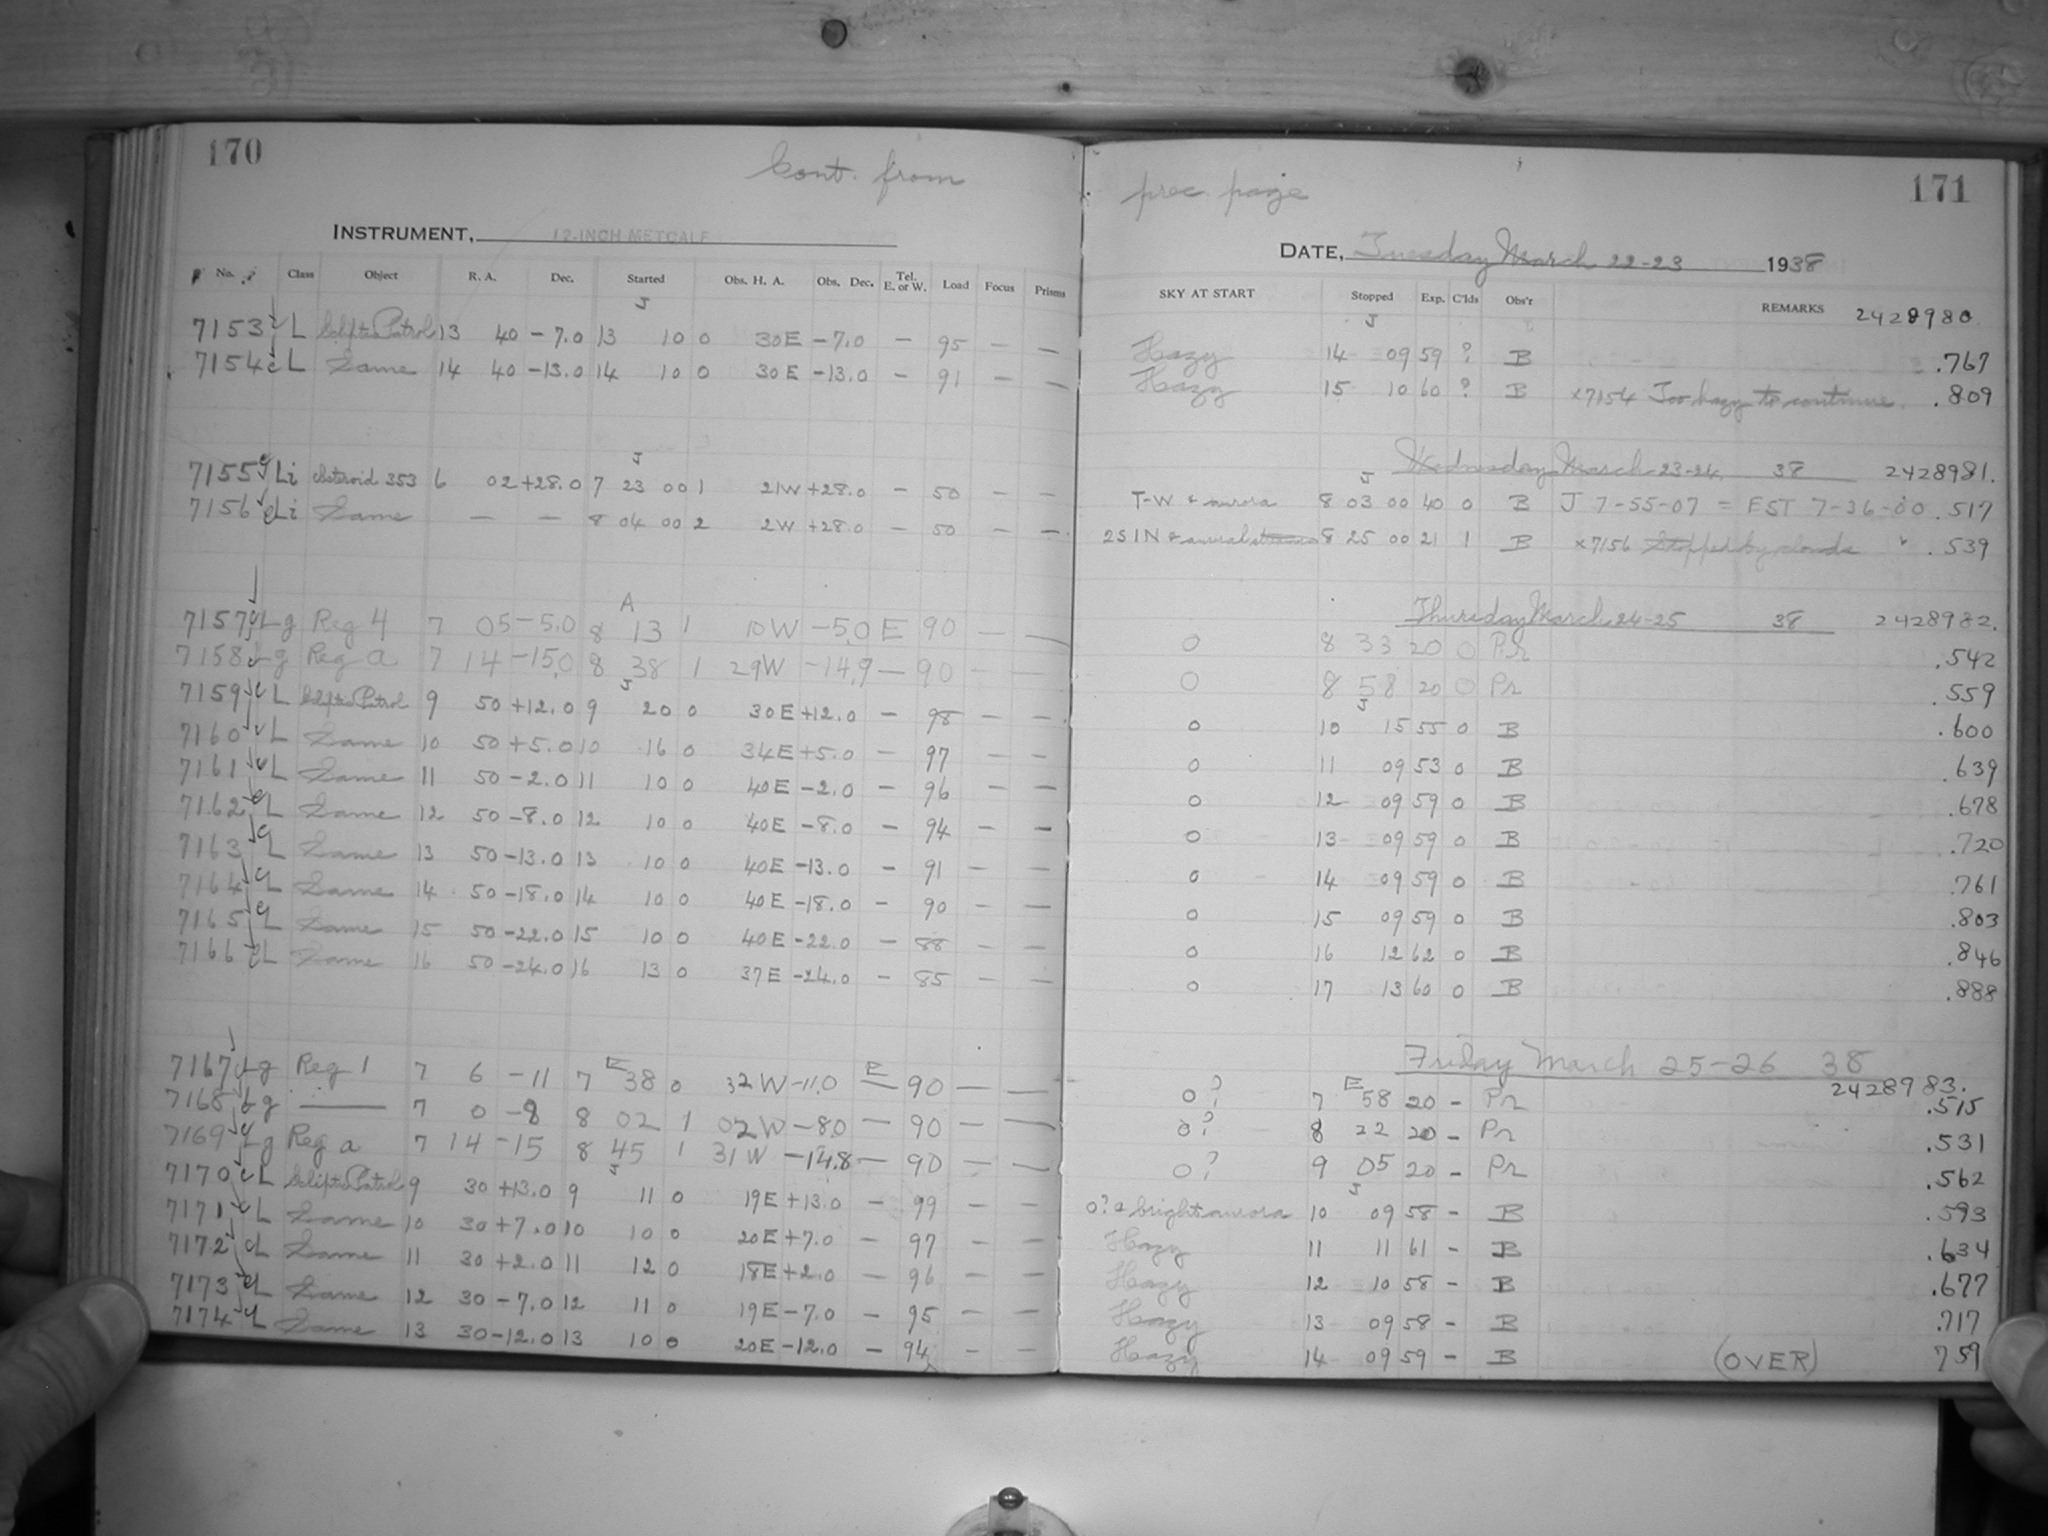 170
Cont. from
INSTRUMENT, 12-INCH METCALF
No. Class Object R. A. Dec. Started Obs. H. A. Obs. Dec. Tel. E. or W. Load Focus Prisms
J
7153 L Ecliptic Patrol 13 40 -7.0 13 10 0 30E -7.0 - 95 - -
7154 L Same 14 40 -13.0 14 10 0 30E -13.0 - 91 - -
J
7155 Li Asteroid 353 6 02 +28.0 7 23 00 1 21W +28.0 - 50 - -
7156 Li Same - - 8 04 00 2 2W +28.0 - 50 - -
A
7157 Lg Reg 4 7 05 -5.0 8 13 1 10W -5.0 E 90 - -
7158 Lg Reg a 7 14 -15.0 8 38 1 29W -14.9 - 90 - -
J
7159 L Ecliptic Patrol 9 50 +12.0 9 20 0 30E +12.0 - 98 - -
7160 L Same 10 50 +5.0 10 16 0 34E +5.0 - 97 - -
7161 L Same 11 50 -2.0 11 10 0 40E -2.0 - 96 - -
7162 L Same 12 50 -8.0 12 10 0 40E -8.0 - 94 - -
7163 L Same 13 50 -13.0 13 10 0 40E -13.0 - 91 - -
7164 L Same 14 50 -18.0 14 10 0 40E -18.0 - 90 - -
7165 L Same 15 50 -22.0 15 10 0 40E -22.0 - 88 - -
7166 L Same 16 50 -24.0 16 13 0 37E -24.0 - 85 - -
E E
7167 Lg Reg 1 7 6 -11 7 38 0 32W -11.0 - 90 - -
7168 Lg — 7 0 -8 8 02 1 02W -8.0 - 90 - -
7169 Lg Reg a 7 14 -15 8 45 1 31W -14.8 - 90 - -
J
7170 L Ecliptic Patrol 9 30 +13.0 9 11 0 19E +13.0 - 99 - -
7171 L Same 10 30 +7.0 10 10 0 20E +7.0 - 97 - -
7172 L Same 11 30 +2.0 11 12 0 18E +2.0 - 96 - -
7173 L Same 12 30 -7.0 12 11 0 19E -7.0 - 95 - -
7174 L Same 13 30 -12.0 13 10 0 20E -12.0 - 94 - -
171
prec. page
DATE, Tuesday March 22-23 1938
SKY AT START Stopped Exp. C'lds Obs'r REMARKS 2428980
J
Hazy 14 09 59 ? B .767
Hazy 15 10 60 ? B x7154 Too hazy to continue. .809
Wednesday March 23-24 38 2428981.
J
T-W & aurora 8 03 00 40 0 B J 7-55-07 = EST 7-36-00 .517
2S 1N & auroral 8 25 00 21 1 B x7156 Stopped by clouds .539
Thursday March 24-25 38 2428982.
0 8 33 20 0 Pr .542
0 8 58 20 0 Pr .559
J
0 10 15 55 0 B .600
0 11 09 53 0 B .639
0 12 09 59 0 B .678
0 13 09 59 0 B .720
0 14 09 59 0 B .761
0 15 09 59 0 B .803
0 16 12 62 0 B .846
0 17 13 60 0 B .888
Friday March 25-26 38
2428983.
E
0? 7 58 20 - Pr .515
0? 8 22 20 - Pr .531
0? 9 05 20 - Pr .562
J
0? & bright aurora 10 09 58 - B .593
Hazy 11 11 61 - B .634
Hazy 12 10 58 - B .677
Hazy 13 09 58 - B .717
Hazy 14 09 59 - B (OVER) 759